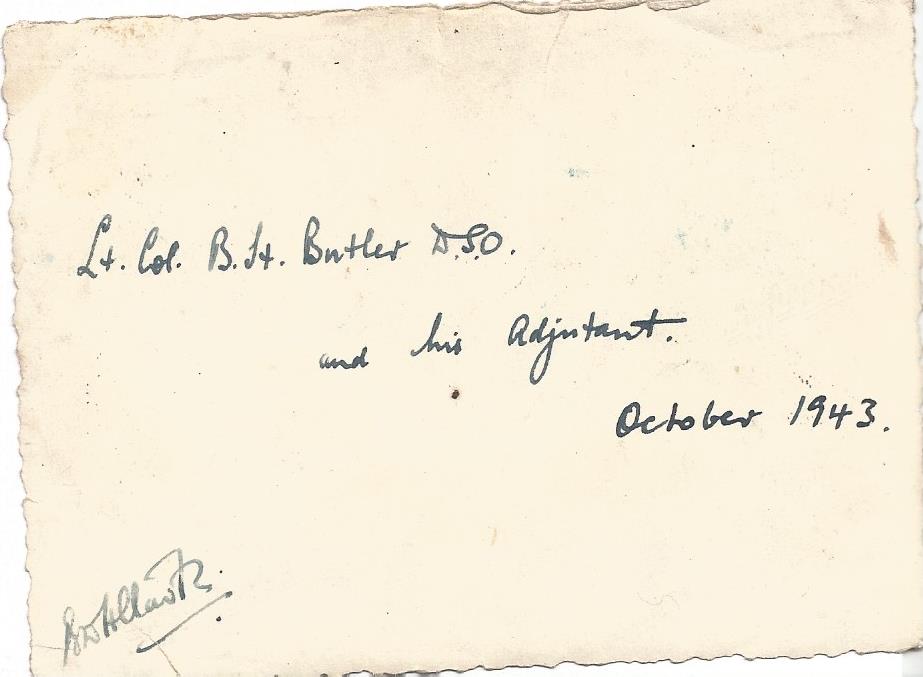 Lt. Col. B. H. Butler D.S.O.
and his Adjutant.
October 1943.